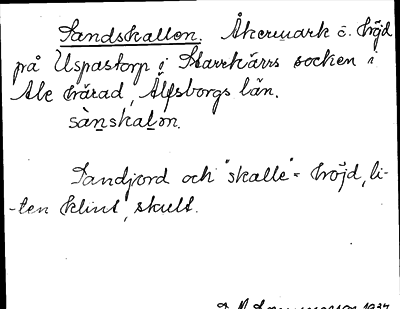 Sandskallen. Åkermark o. höjd
på Uspastorp i Starrkärrs socken i
Ale härad, Älfsborgs län.
sànskalen.
Sandjord och "skalle" = höjd, li-
-ten klint, skult.
1934